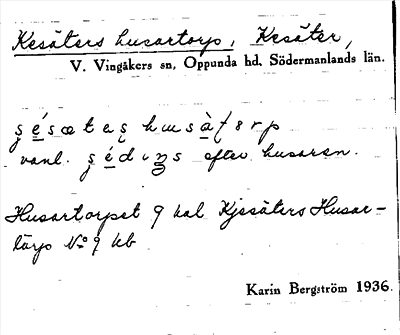 Kesäters husartorp, Kesäter,
V. Vingåkers sn, Oppunda hd. Södermanlands län.
vanl. efter husaren.
Husartorpet 9 kal Kjesäters Husar-
torp No 9 kb
Karin Bergström 1936.